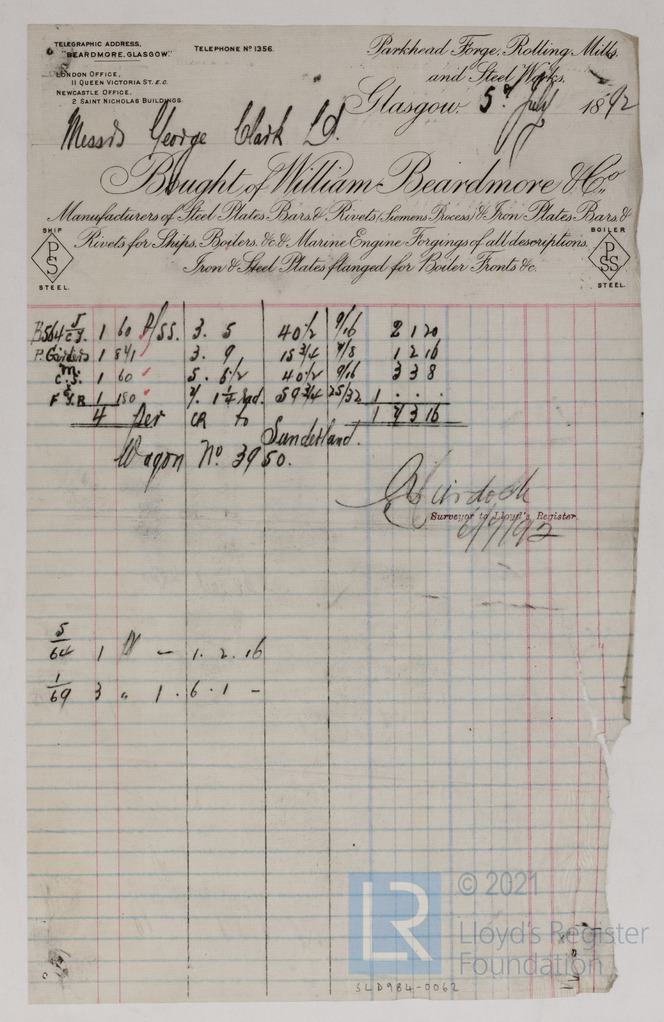 TELEGRAPHIC ADDRESS,
"BEARDMORE, GLASGOW."
TELEPHONE Nº 1356.
LONDON OFFICE,
11 QUEEN VICTORIA ST. E.C.
NEWCASTLE OFFICE,
2 SAINT NICHOLAS BUILDINGS
Parkhead Forge, Rolling Mills,
and Steel Works,
Glasgow. 5th July 1892
Messrs George Clark Ld.
Bought of William Beardmore & Co.,
Manufacturers of Steel Plates Bars & Rivets (Siemens Process) & Iron Plates Bars, &
Rivets for Ships, Boilers, &c & Marine Engine Forgings of all descriptions.
Iron & Steel Plates flanged for Boiler Fronts &c.
SHIP
PS
STEEL.
BOILER
PSS
STEEL.
1 60 P/SS. 3. 5 40 1/2 9/16 2 1 20
P. Girders 1 841 3. 9 15 3/4 7/8 1 2 16
C.S. 1 60 5. 40 1/2 9/16 3 3 8
1 150 rad. 59 3/4 25/32 1 . . .
4 per CR to Sunderland. 1 7 3 16
Wagon No. 3950.
Murdoch
Surveyor to Lloyd's Register.
6/7/92
5/64 1 – 1. 2. 16
1/69 3 " 1 . 6 . 1 –
LR
© 2021
Lloyd's Register
Foundation
SLD984-0062